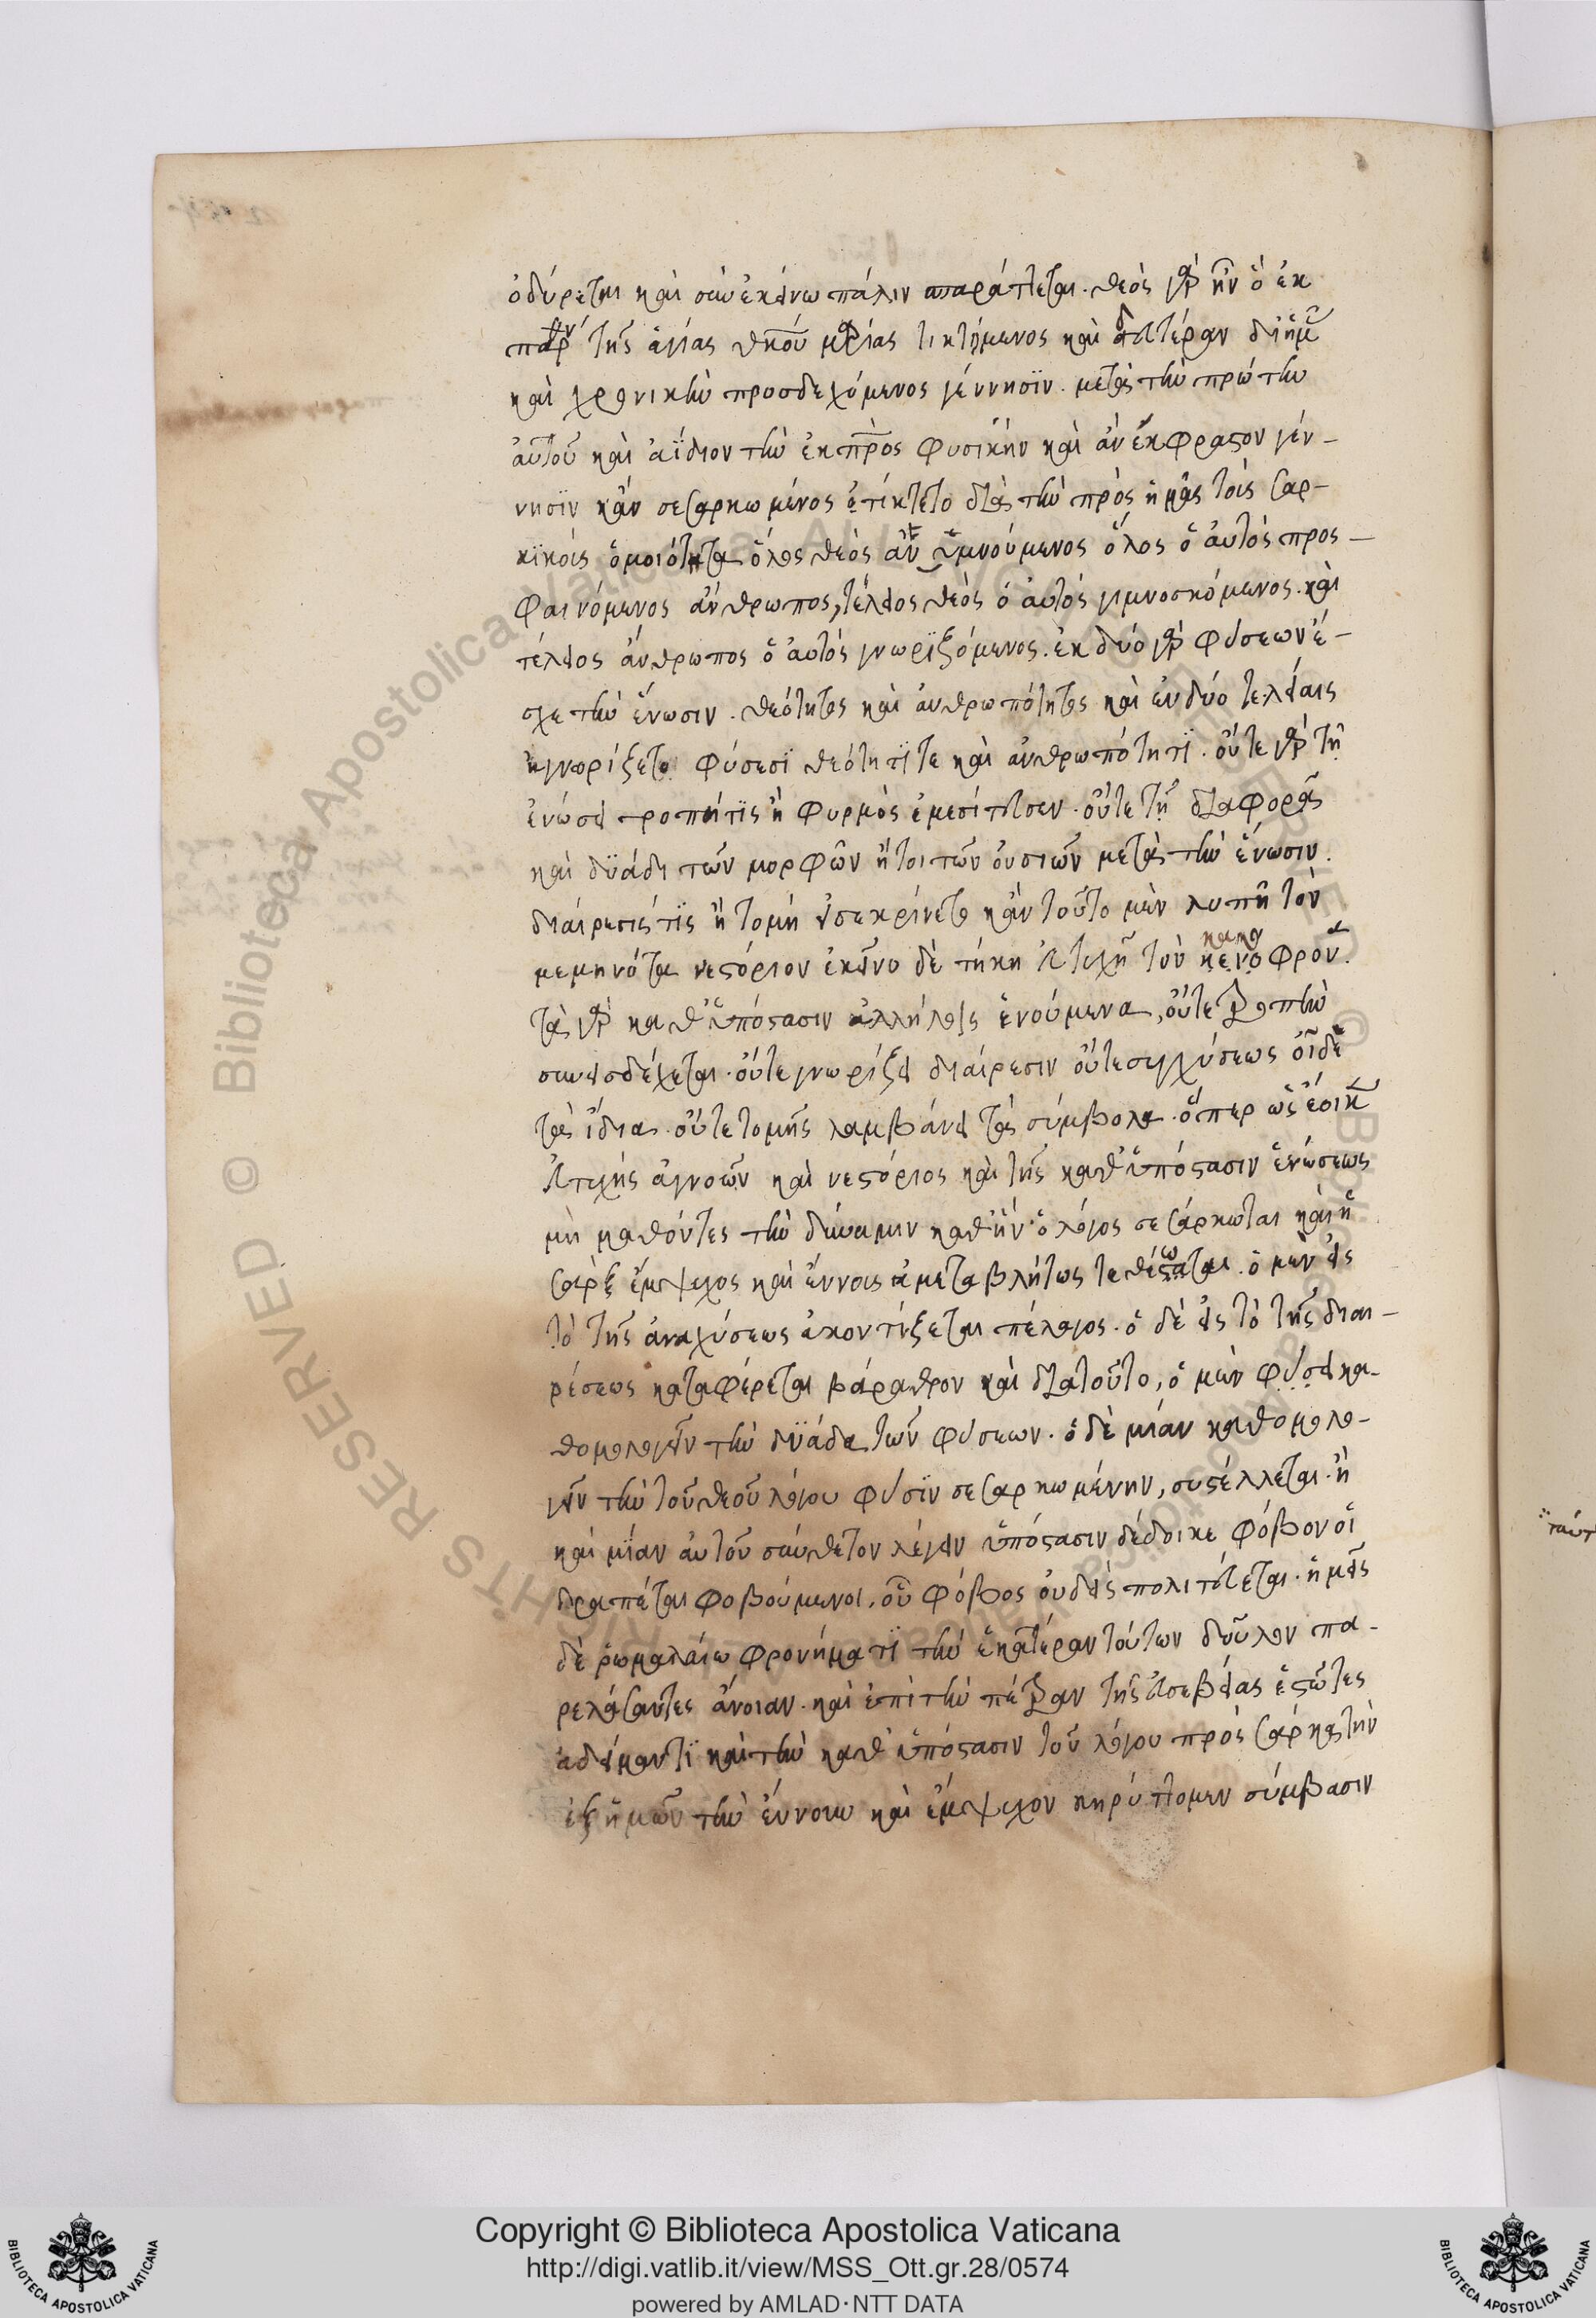 ὀδύρεται καὶ σὺν ἐκείνω πάλιν σπαράττεται. θεὸς γὰρ ἦν ὁ ἐκ
παρθέν τῆς ἁγίας θκου μαρίας τικτόμενος καὶ δευτέραν δι ἡμ
καὶ χρονικὴν προσδεχόμενος γέννησϊν. μετὰ τὴν πρώτην
αὐτοῦ καὶ ἀΐδιον τὴν ἐκ προς φυσικὴν καὶ ἀνέκφραστον γέν-
νησϊν κἂν σεσαρκωμένος ἐτίκτετο διὰ τὴν πρὸς ἡμᾶς τοῖς σαρ-
κϊκοῖς ὁμοιότητα ὅλος θεὸς ὑμνούμενος ὅλος ὁ αὐτὸς προς-
φαινόμενος ἄνθρωπος, τέλειος θεὸς ὁ αὐτὸς γιμνοσκόμενος. καὶ
τέλειος ἄνθρωπος ὁ αὐτὸς γνωρϊζόμενος. ἐκ δύο γὰρ φύσεων ἔ-
σχε τὴν ἕνωσιν. θεότητος καὶ ἀνθρωπότητος καὶ ἐν δύο τελείαις
ἐγνωρίζετο φύσεσϊ θεότητϊ τε καὶ ἀνθρωπότητϊ. οὔτε γὰρ τῆ
ἑνώσει τροπή τϊς ἢ φυρμὸς ἐμεσίτευσεν. οὔτε τῆ διαφορᾶ
καὶ δϋάδι τῶν μορφῶν ἤτοι τῶν οὐσιῶν μετὰ τὴν ἕνωσιν.
διαίρεσίς τϊς ἢ τομὴ εἰσεκρίνετο κἂν τοῦτο μὲν λυπῆ τὸν
μεμηνότα νεστόριον ἐκεῖνο δὲ τήκη εὐτυχῆ τὸν κενοφρον.
κακο
τὰ γὰρ καθ' ὑπόστασιν ἀλλήλοις ἑνούμενα, οὔτε τροπὴν
συνεισδέχεται. οὔτε γνωρίζει διαίρεσιν οὔτε συγχύσεως οἶδε
τὰ ἴδια. οὔτε τομῆς λαμβάνει τὰ σύμβολα. ὅπερ ὡς ἔοικ
εὐτυχὴς ἀγνοῶν καὶ νεστόριος καὶ τῆς καθ' ὑπόστασιν ἑνώσεως
μὴ μαθόντες τὴν δύναμιν καθ' ἣν ὁ λόγος σεσάρκωται καὶ ἡ
σὰρξ ἔμψυχος καὶ ἔννους ἀμεταβλήτως τεθέωται. ὁ μὲν εἰς
τὸ τῆς ἀναχύσεως ἀκοντίζεται πέλαγος. ὁ δὲ εἰς τὸ τῆς διαι-
ρέσεως καταφέρεται βάραθρον καὶ διατοῦτο, ὁ μὲν φύσει κα-
θομολογεῖν τὴν δϋάδα τῶν φύσεων. ὁ δὲ μίαν καθομολο-
γεῖν τὴν τοῦ θεοῦ λόγου φύσϊν σεσαρκωμένην, συστέλλεται. ἢ
καὶ μΐαν αὐτοῦ σύνθετον λέγειν ὑπόστασιν δέδοικε φόβον οἱ
δραπέται φοβούμενοι, οὗ φόβος οὐδεὶς πολιτεύεται. ἡμεῖς
δὲ ῥωμαλαίω φρονήματϊ τὴν ἑκατέραν τούτων δοῦλον πα-
ρελάσαντες ἄνοιαν. καὶ ἐπὶ τὴν πέτραν τῆς εὐσεβείας ἑστῶτες
ἀδείμαντϊ καὶ τὴν καθ' ὑπόστασιν τοῦ λόγου πρὸς σάρκα τὴν
ἐξ ἡμῶν τὴν ἔννουν καὶ ἔμψυχον κηρύττομεν σύμβασιν
Copyright © Biblioteca Apostolica Vaticana
http://digi.vatlib.it/view/MSS_Ott.gr.28/0574
powered by AMLAD·NTT DATA
BIBLIOTECA APOSTOLICA VATICANA
BIBLIOTECA APOSTOLICA VATICANA